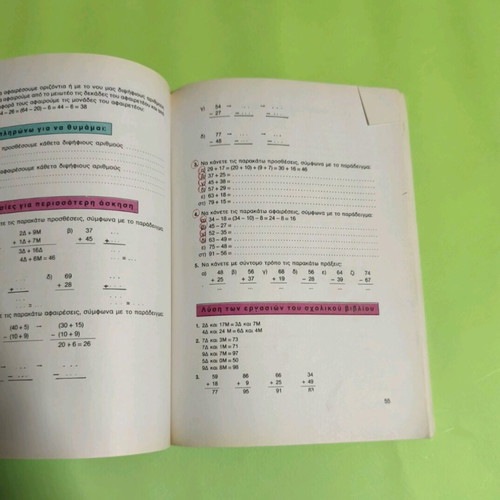 αφαιρέσουμε οριζόντια ή με το νου μας διψήφιους αριθμούς,
αφαιρούμε από το μειωτέο τις δεκάδες του αφαιρετέου και από
φορά τους αφαιρούμε τις μονάδες του αφαιρετέου:
– 26 = (64 – 20) – 6 = 44 – 6 = 38
για να θυμάμαι
προσθέσουμε κάθετα διψήφιους αριθμούς
αφαιρέσουμε κάθετα διψήφιους αριθμούς
για περισσότερη άσκηση
τις παρακάτω προσθέσεις, σύμφωνα με το παράδειγμα:
2Δ + 9Μ β) 37
+ 1Δ + 7Μ + 45 +
3Δ + 16Δ
4Δ + 6Μ = 46
δ) 69
+ 28 +
παρακάτω αφαιρέσεις, σύμφωνα με το παράδειγμα:
(40 + 5) → (30 + 15)
– (10 + 9) – (10 + 9)
20 + 6 = 26
γ) 64 →
– 27 →
δ) 77 →
– 48 →
3. Να κάνετε τις παρακάτω προσθέσεις, σύμφωνα με το παράδειγμα:
α) 29 + 17 = (20 + 10) + (9 + 7) = 30 + 16 = 46
β) 37 + 25 =
γ) 45 + 38 =
δ) 57 + 29 =
ε) 63 + 18 =
στ) 79 + 15 =
4. Να κάνετε τις παρακάτω αφαιρέσεις, σύμφωνα με το παράδειγμα:
α) 34 – 18 = (34 – 10) – 8 = 24 – 8 = 16
β) 45 – 27 =
γ) 52 – 35 =
δ) 63 – 49 =
ε) 75 – 48 =
στ) 81 – 56 =
5. Να κάνετε με σύντομο τρόπο τις παρακάτω πράξεις:
α) 48 β) 56 γ) 68 δ) 56 ε) 64 ζ) 74
+ 25 + 37 + 19 – 28 – 39 – 67
Λύση των εργασιών του σχολικού βιβλίου
1. 2Δ και 17Μ = 3Δ και 7Μ
4Δ και 24 Μ = 6Δ και 4Μ
2. 7Δ και 3Μ = 73
7Δ και 1Μ = 71
9Δ και 7Μ = 97
5Δ και 0Μ = 50
9Δ και 8Μ = 98
3. 59 86 66 34
+ 18 + 9 + 25 + 49
77 95 91 83
55